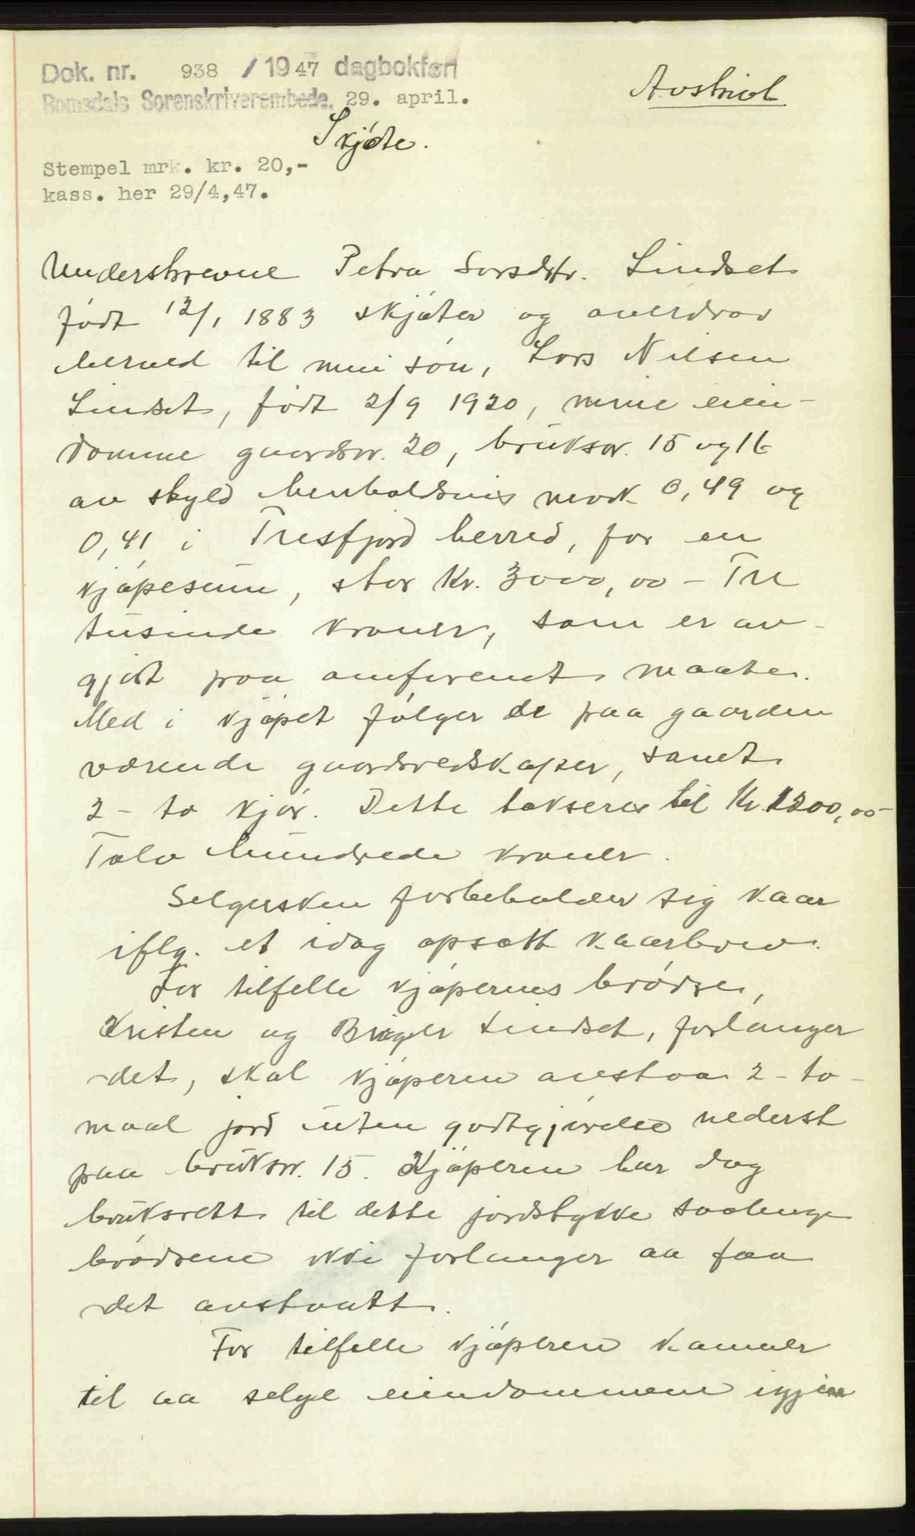 Dok. nr. 938 / 1947 dagbokført
Romsdals Sorenskriverembede, 29. april.
Avskrivt
Skjöte.
Stempel mrk. kr. 20,-
kass. her 29/4,47.
Underskrevne Petra Larsdtr. Lindset
født 12/1 1883 skjöter og överdrar
herved til min sön, Lars Nilsen
Lindset, født 2/9 1920, mine eien-
domme gaardsnr. 20, bruksnr. 15 og 16
av skyld henholdsvis mark 0,49 og
0,41 i Tresfjord herred, for en
kjöpesum, stor Kr. 3000,00 - Tre
tusinde kroner, som er av-
gjort paa omforenet maate.
Med i kjöpet fölger de paa gaarden
værende gaardsredskaper, samt
2 - to kjör. Dette takseres til Kr. 1200,00-
Tolv hundrede kroner.
Selgersken forbeholder sig kaar
iflg. et idag opsatt kaarbrev.
For tilfelle kjöperens brødre,
Kristen og Birger Lindset, forlanger
det, skal kjöperen avstaa 2 - to -
maal jord uten godtgjörelse nederst
paa bruksnr. 15. Kjöperen har dog
bruksrett til dette jordstykke saalenge
brødrene ikke forlanger aa faa
det avstaatt.
For tilfelle kjöperen kommer
til aa selge eiendommen igjen